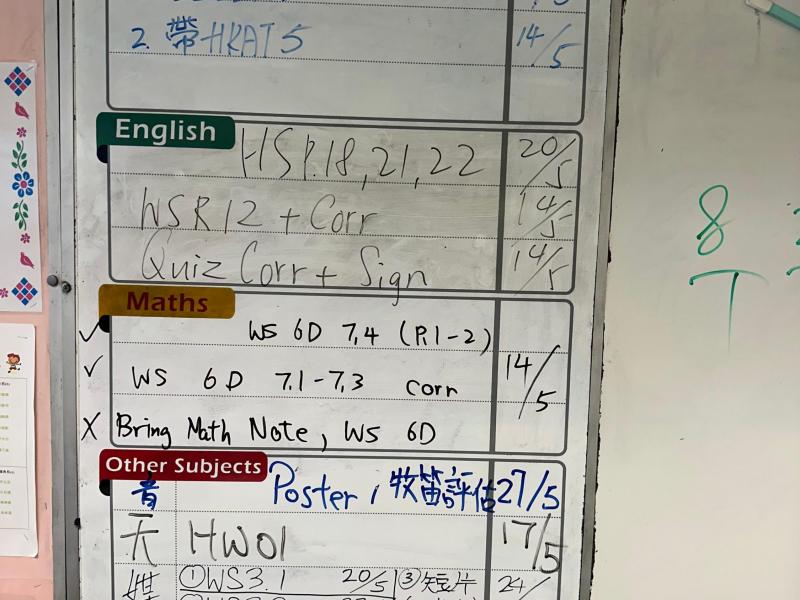 2. 帶 HKAT 5 14/5
English
HS P.18, 21, 22 20/5
WSR 12 + Corr 14/5
Quiz Corr + Sign 14/5
Maths
✓ WS 6D 7.4 (P.1-2)
✓ WS 6D 7.1-7.3 corr 14/5
X Bring Math Note, WS 6D
Other Subjects
音 Poster, 牧笛評估 27/5
HW01 17/5
①WS3.1 20/5 ③短片 24/
8
T